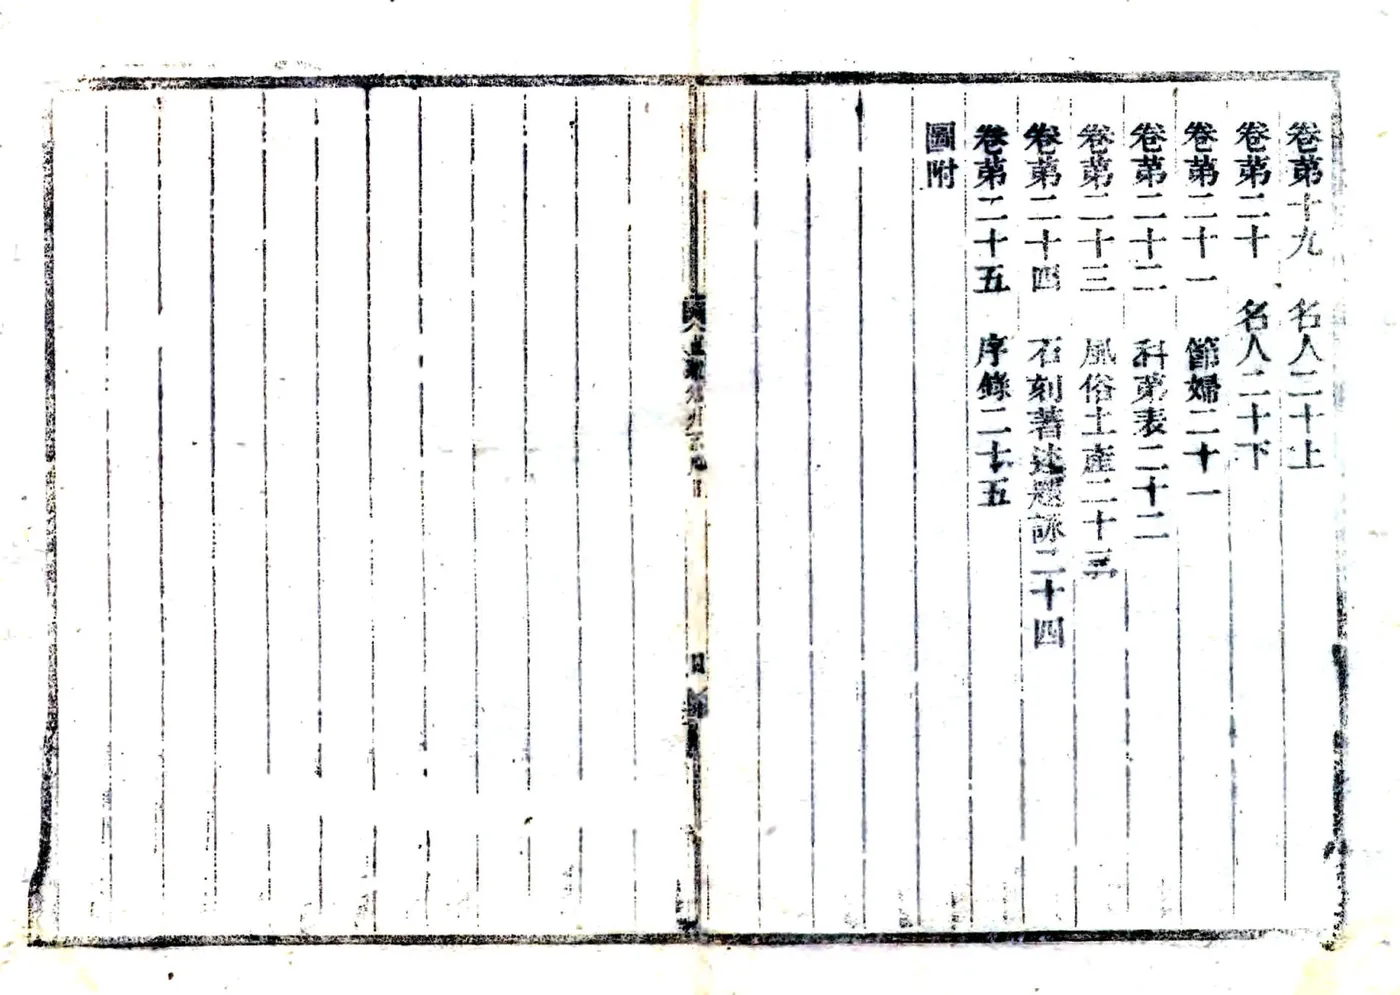 卷第十九 名人二十上
卷第二十 名人二十下
卷第二十一 節婦二十一
卷第二十二 科第表二十二
卷第二十三 風俗土產二十三
卷第二十四 石刻著述題詠二十四
卷第二十五 序錄二十五
圖附